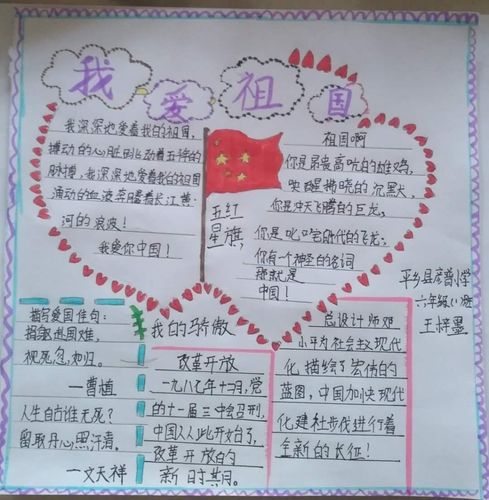 我爱祖国
我深深地爱着我的祖国,
搏动的心脏跳动着五千年的
脉搏,我深深地爱着我的祖国
涌动的血液奔腾着长江黄
河的浪波!
我爱你中国!
五红
星旗,
祖国啊
你是昂首高吭的雄鸡,
唤醒拂晓的沉黑,
你是冲天飞腾的巨龙,
你是叱咤时代的飞龙,
你有一个神圣的名词
那就是
中国!
平乡县 小学
六年级(1)班
王梓墨
描写爱国佳句:
捐躯赴国难,
视死忽如归。
一曹植
人生自古谁无死?
留取丹心照汗青。
一文天祥
我的骄傲
改革开放
一九八七年十二月,党
的十一届三中会召刑,
中国人从此开始了,
改革开放的
新时其月。
总设计师邓
小平为社会主义现代
化描绘了宏伟的
蓝图,中国加快现代
化建社步伐进行着
全新的长征!